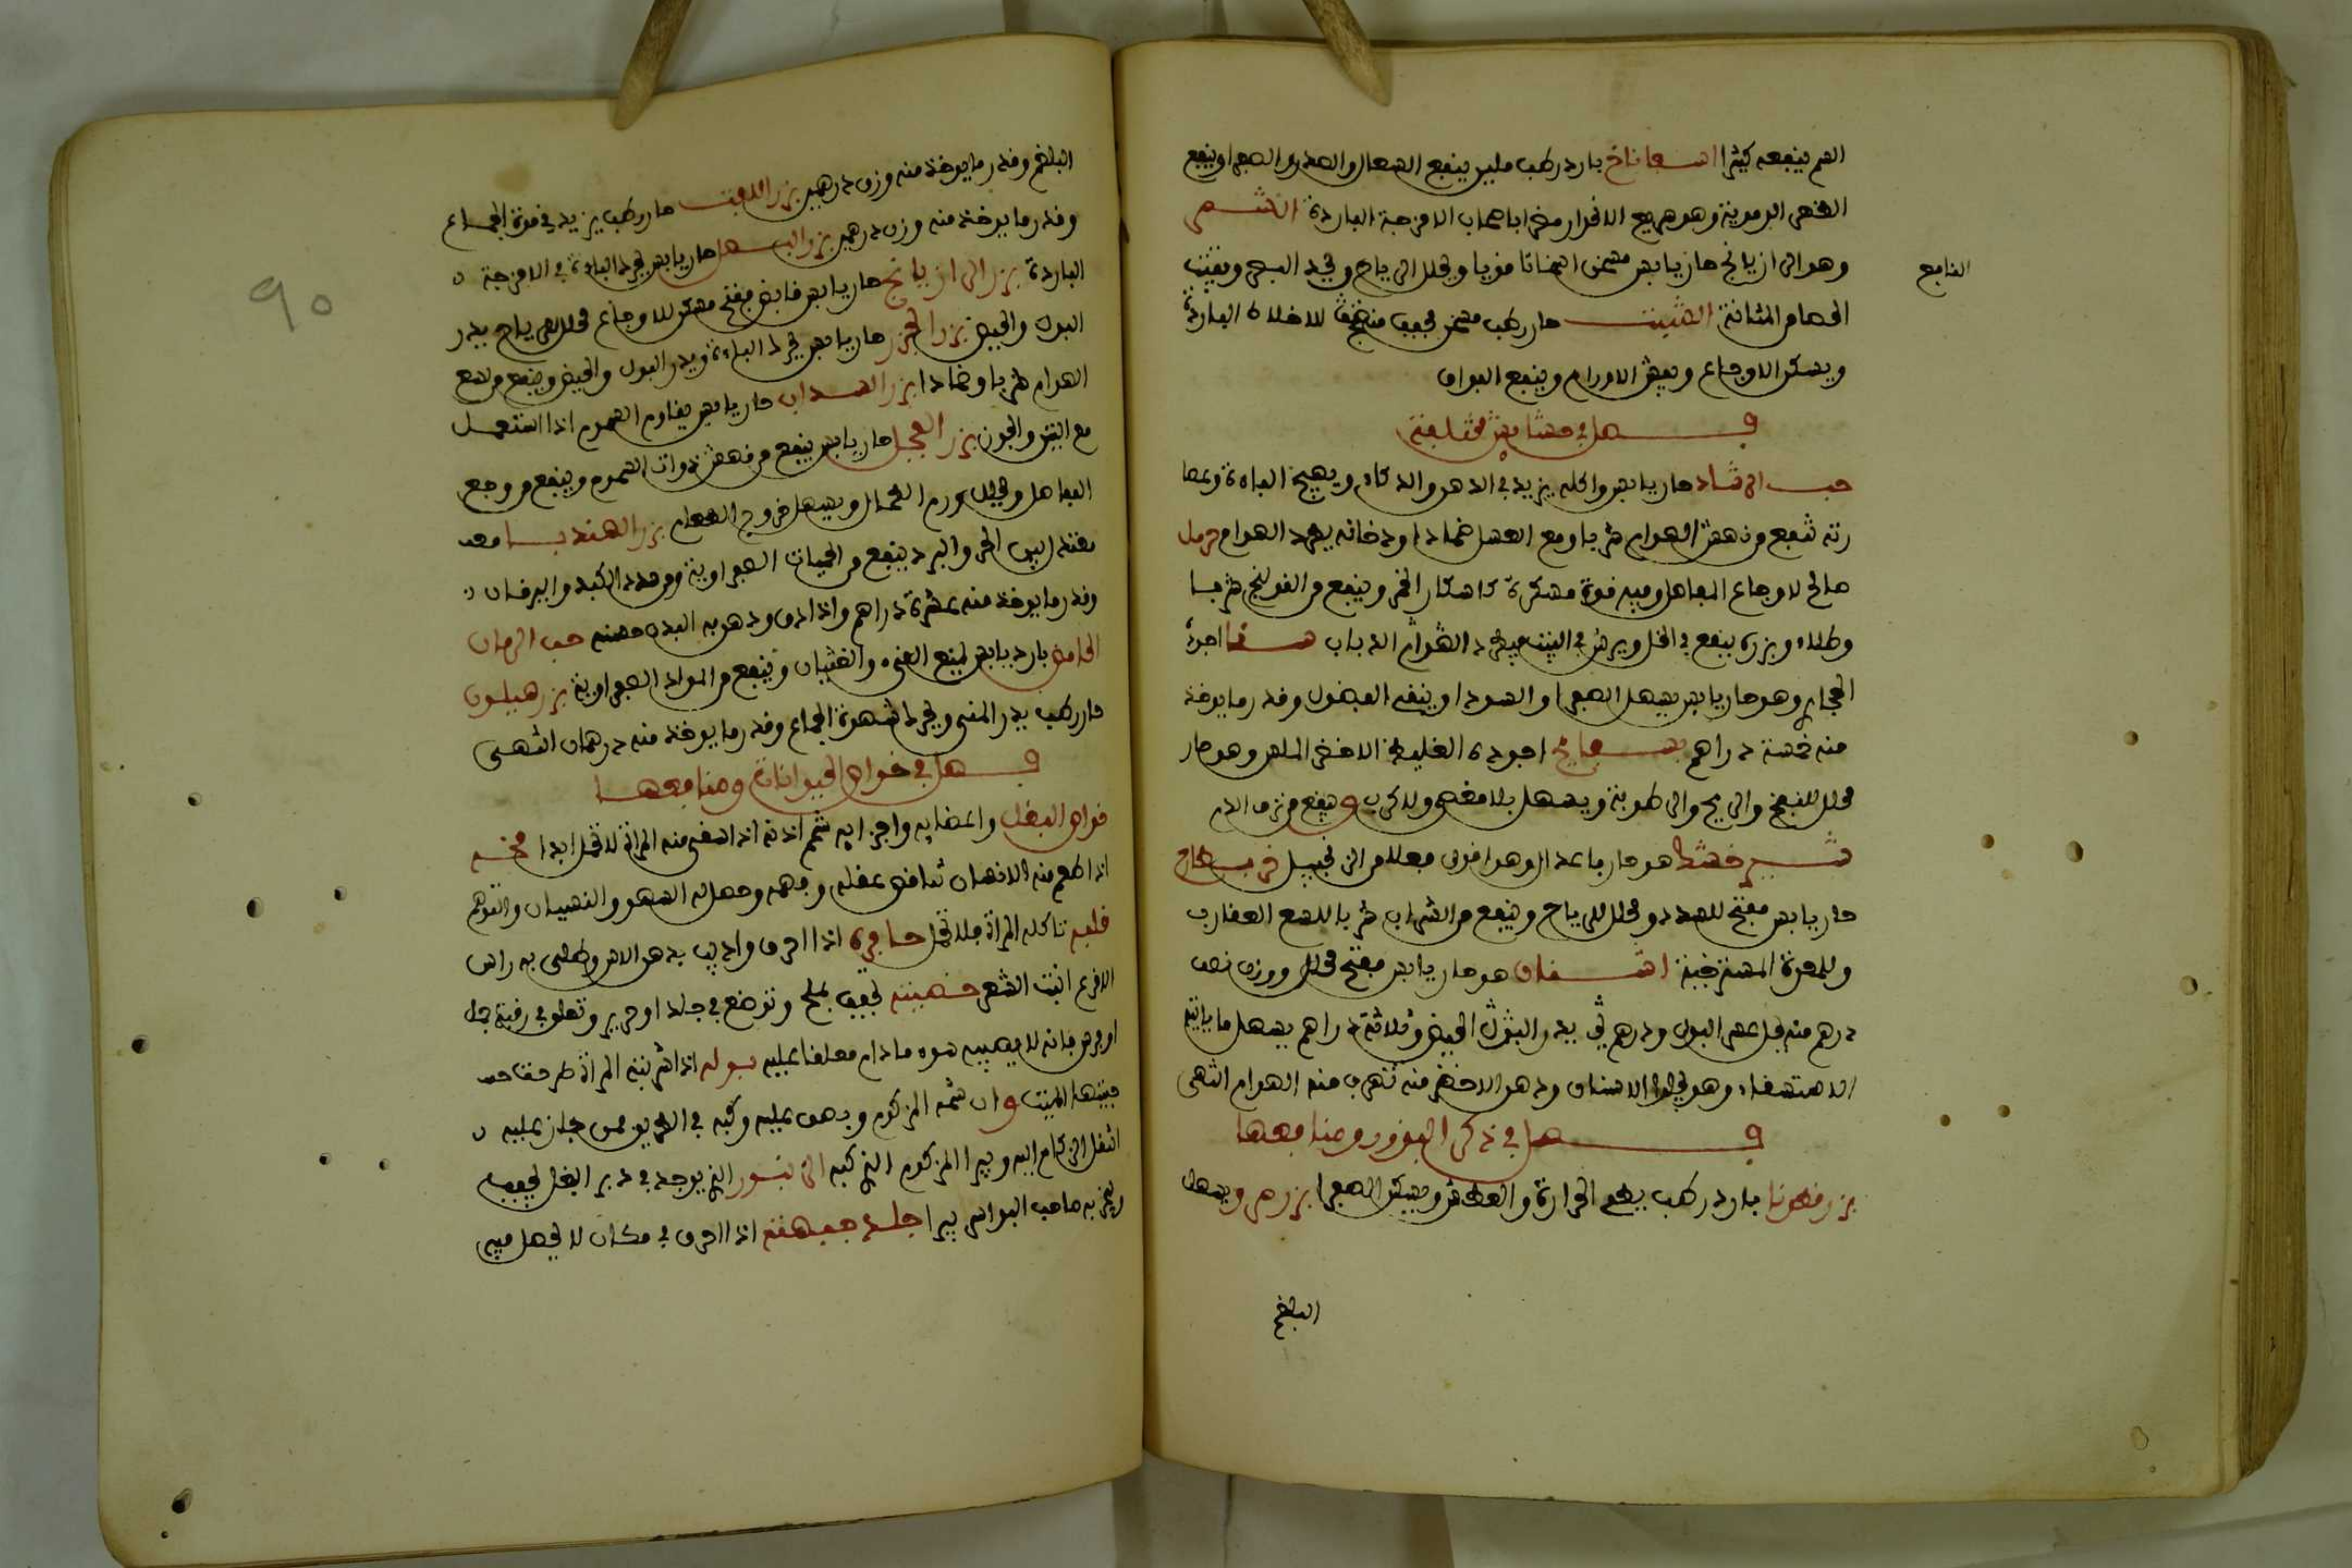 الدم ينفعه كثيرا اسفاناخ بارد رطب ملين ينفع السعال والصدر والصفرا وينفع
الدموية وهو سريع الانحدار مضر باصحاب الامزجة الباردة
النافع
وهو الرازيانج حار يابس مسخن اسخانا قويا ويحلل الرياح ويحد البصر ويفتت
الحصا من المثانة الشبت حار رطب مسخن مجفف منضج للاخلاط الباردة
ويسكن الاوجاع ويفش الاورام وينفع الفواق
فصل في حشايش مختلفة
حب الرشاد حار يابس واكله يزيد في الذهن والذكاء ويهيج الباه وعصا
رته تنفع من نهش الهوام شربا ومع العسل ضمادا ودخانه يطرد الهوام حرمل
صالح لاوجاع المفاصل وفيه قوة مسكرة كاسكار الخمر وينفع من القولنج شربا
وطلاء وبزره ينفع في الخل ويرش في البيت فيطرد الهوام الذباب سنا اجوده
الحجازي وهو حار يابس يسهل الصفرا والسودا وينقي الفضول وقدر ما يوخذ
منه خمسة دراهم بسفايج اجوده الغليظ الاخضر الملس وهو حار
محلل للنفخ والريح والرطوبة ويسهل بلا مغص ولا كرب وينفع من نزف الدم
هو حار باعتدال وهو اقوى فعلا من الزنجبيل
حار يابس مفتح للسدد ومحلل للرياح وينفع من الشراب شربا للسع العقارب
وللمعدة المسترخية هو حار يابس مفتح محلل ووزن نصف
درهم منه يحل عسر البول ودرهم يدر الحيض وثلاثة دراهم يسهل ماء
الاستسقاء وهو يجلو الاسنان ودهن الاخضر منه تهرب منه الهوام انتهى
فصل في ذكر البزور ومنافعها
بزر قطونا بارد رطب يطفي الحرارة والعطش ويسكن الصفرا بزر مرو يسهل
البلغم
٩٠
البلغم وقدر ما يوخذ منه وزن درهمين بزر اللفت حار رطب يزيد في قوة الجماع
وقدر ما يوخذ منه وزن درهمين بزر البصل حار يابس يحرك الباه في الامزجة
الباردة بزر الرازيانج حار يابس قابض مفتح مسكن للاوجاع محلل للرياح يدر
البول والحيض بزر الجزر حار يابس يحرك الباه ويدر البول والحيض وينفع من لسع
الهوام شربا وضمادا بزر السداب حار يابس يقاوم السموم اذا استعمل
مع التين والجوز بزر الفجل حار يابس ينفع من نهش ذوات السموم وينفع من وجع
المفاصل ويحلل ورم الطحال ويسهل خروج الطعام بزر الهندبا معه
معتدل بين الحر والبرد ينفع من الحميات الصفراوية ومن سدد الكبد واليرقان
وقدر ما يوخذ منه عشرة دراهم واذا دق ودهن به البدن حسنه حب الرمان
الحامض بارد يابس يمنع القيء والغثيان وينفع من المواد الصفراوية بزر هليون
حار رطب يدر المني ويحرك شهوة الجماع وقدر ما يوخذ منه درهمان انتهى
فصل في خواص الحيوانات ومنافعها
خواص البغل واعضايه واجزايه شحم اذنه اذا سقي منه المراة لا تحمل ابدا مخه
اذا طعم منه الانسان تناقص عقله وفهمه وحصل له السهو والنسيان والتوهم
قلبه تاكله المراة فلا تحمل حافره اذا احرق واذيب بدهن الاس وطلي به راس
الاقرع انبت الشعر خصيته تجفف بملح وتوضع في جلد او حرير وتعلق في رقبة جمل
او فرس فانه لا يصيبه سوء ما دام معلقا عليه بوله اذا شربته المراة طرحت
جنينها الميت وان شمه المزكوم وبصق عليه وكبه في الطريق فمن جاز عليه
انتقل الزكام اليه وبرا المزكوم الذي كبه الزنبور الذي يوجد في دبر البغل يجفف
ويبخر به صاحب البواسير يبرا جلد جبهته اذا احرق في مكان لا يحصل فيه